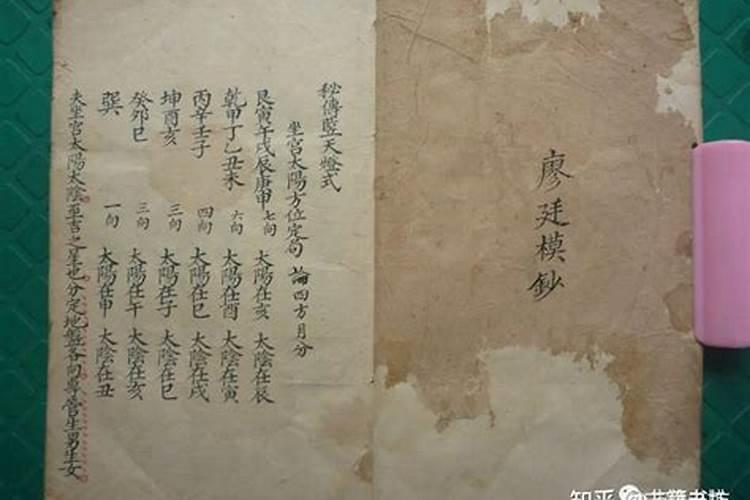 廖廷模鈔
秘傳竪天燈式
坐宮太陽方位定局 論四方月分
艮寅午戌辰庚申 七向 太陽在亥 太陰在辰
乾甲丁乙丑未 六向 太陽在酉 太陰在寅
丙辛壬子 四向 太陽在巳 太陰在戌
坤酉亥 三向 太陽在子 太陰在巳
癸卯巳 三向 太陽在午 太陰在亥
巽 一向 太陽在申 太陰在丑
夫坐宮太陽太陰至吉之星也分定地盤各向專管生男生女
知乎